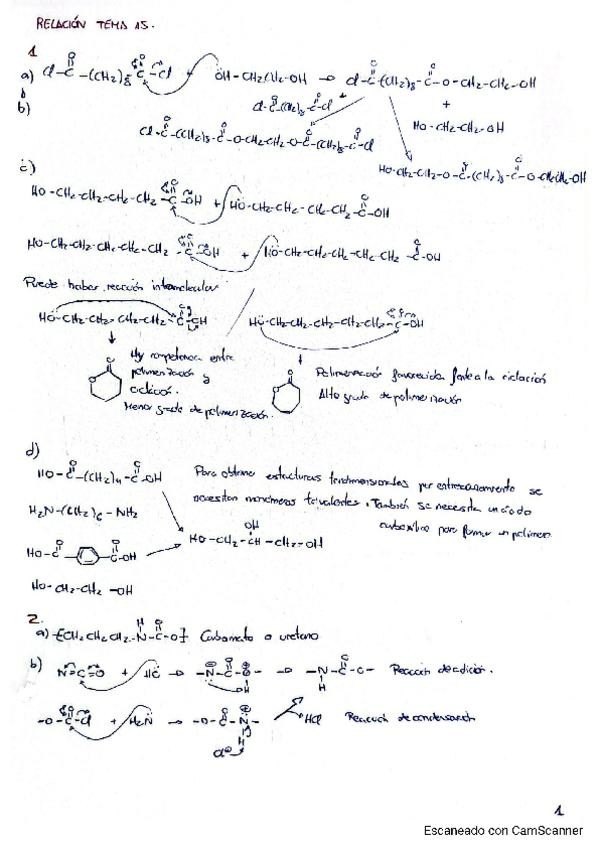 RELACIÓN TEMA 15.
1
a) Cl-C-(CH2)8-C-Cl + HO-CH2CH2-OH → Cl-C-(CH2)8-C-O-CH2-CH2-OH
b) Cl-C-(CH2)8-C-Cl +
HO-CH2-CH2-OH
Cl-C-(CH2)8-C-O-CH2CH2-O-C-(CH2)8-C-Cl
HO-CH2-CH2-O-C-(CH2)8-C-O-CH2CH2-OH
c)
HO-CH2-CH2-CH2-CH2-C-OH + HO-CH2-CH2-CH2-CH2-C-OH
HO-CH2-CH2-CH2-CH2-CH2-C-OH + HO-CH2-CH2-CH2-CH2-CH2-C-OH
Puede haber reacción intramolecular
HO-CH2-CH2-CH2-CH2-C-OH HO-CH2-CH2-CH2-CH2-CH2-C-OH
Hy competencia entre
polimerización y
ciclación.
Menor grado de polimerización.
Polimerización favorecida frente a la ciclación
Alto grado de polimerización
d)
HO-C-(CH2)4-C-OH
Para obtener estructuras tridimensionales por entrecruzamiento se
necesitan monómeros trivalentes. También se necesita un ácido
carboxílico para formar un polímero
H2N-(CH2)6-NH2
OH
HO-CH2-CH-CH2-OH
HO-C C-OH
HO-CH2-CH2-OH
2.
a) -[CH2CH2CH2-N-C-O]- Carbamato o uretano
b) N=C=O + HO → -N-C-O- → -N-C-O- Reacción de adición.
-O-C-Cl + H2N → -O-C-N- HCl Reacción de condensación
1
Escaneado con CamScanner